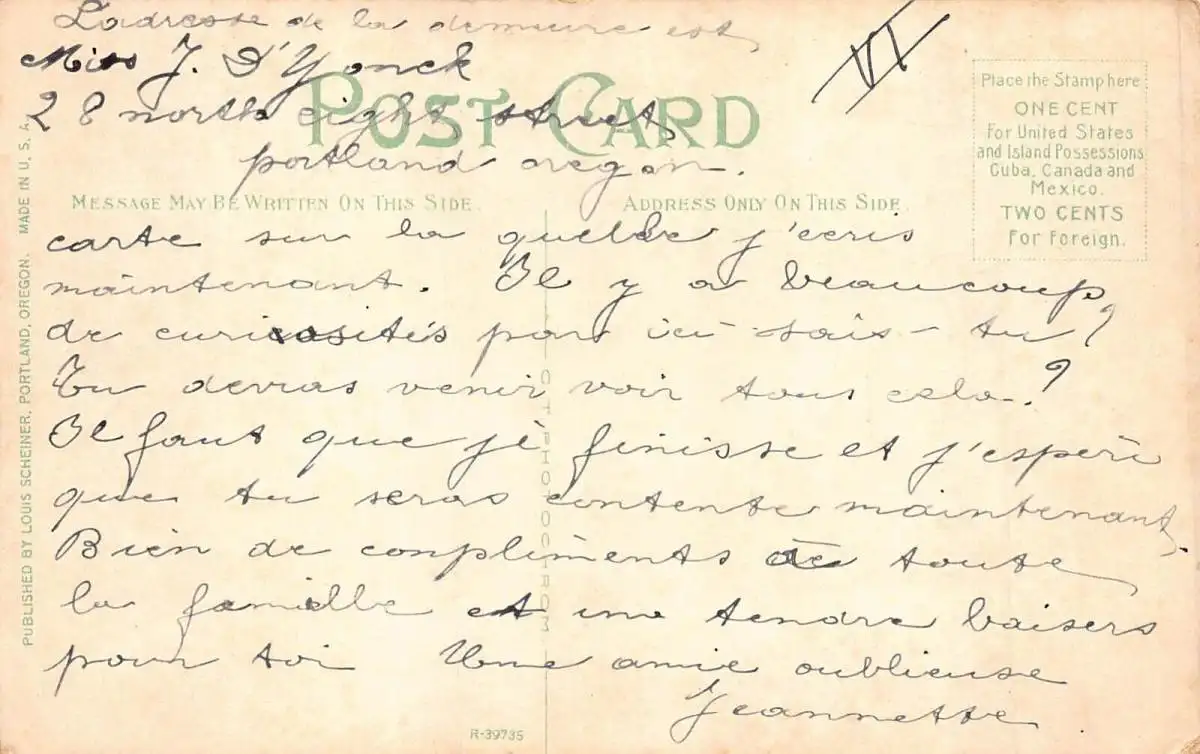 L'adresse de la demeure est
Miss J. D'Yonck
28 north eight street
portland oregon.
VI
POST CARD
Place the Stamp here
ONE CENT
For United States
and Island Possessions
Cuba, Canada and
Mexico.
TWO CENTS
For Foreign.
MESSAGE MAY BE WRITTEN ON THIS SIDE.
ADDRESS ONLY ON THIS SIDE.
carte sur la quelle j'ecris
maintenant. Il y a beaucoup
de curiosités par ici - sais - tu?
Tu devras venir voir tous cela?
Il faut que je finisse et j'espère
que tu seras contente maintenant.
Bien de compliments de toute
la famille et une tendre baisers
pour toi Une amie oublieuse
Jeannette
PUBLISHED BY LOUIS SCHEINER, PORTLAND, OREGON. MADE IN U. S. A.
OCTPHOTOCOLROM
R-39735